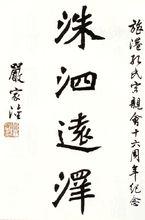 旅港孔氏宗親會十六周年紀念
洙泗遠澤
嚴家淦